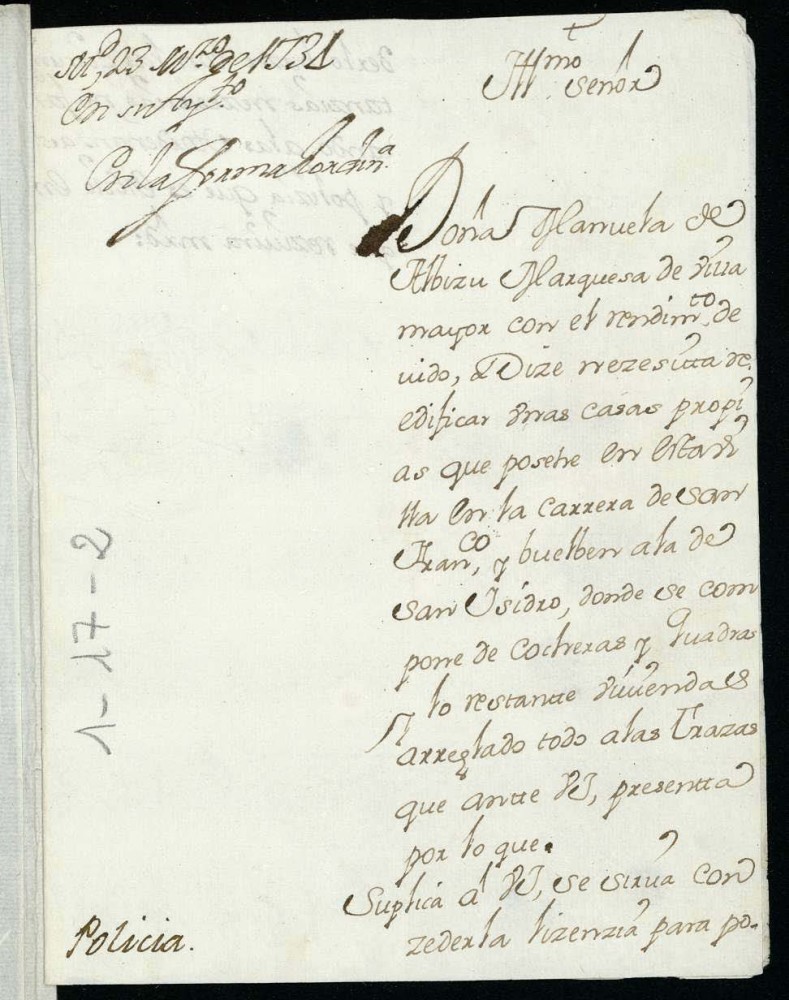 M.d 23 Mrzo de 1731
En su Ayto
En la forma hordin.a
Illmo
Señor
Doña Manuela de
Albizu Marquesa de villa
mayor con el rendimto de
vido, Dize nezesitta de
edificar unas casas propi
as que posehe en esta Vi
lla en la carrera de san
Franco, y buelben ala de
san Isidro, donde se com
pone de cocheras y quadras
y lo restante viviendas
arreglado todo alas trazas
que antte VI, presentta
por lo que.
Suplica a VI, se sirva con
zederla lizenzia para po-
Policia.
1-17-2